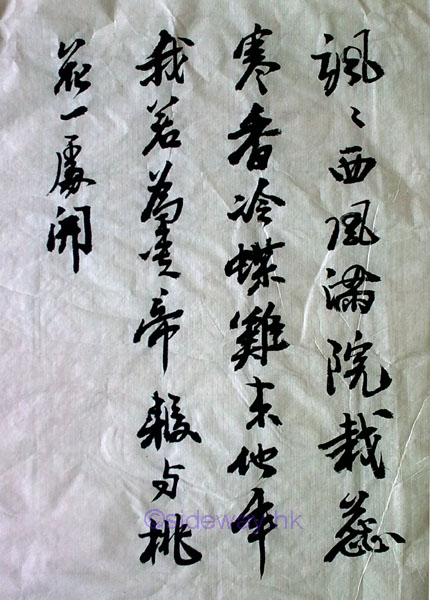 颯〻西風滿院栽蕊
寒香冷蝶難來他年
我若為青帝報与桃
花一處開
©sideway.hk